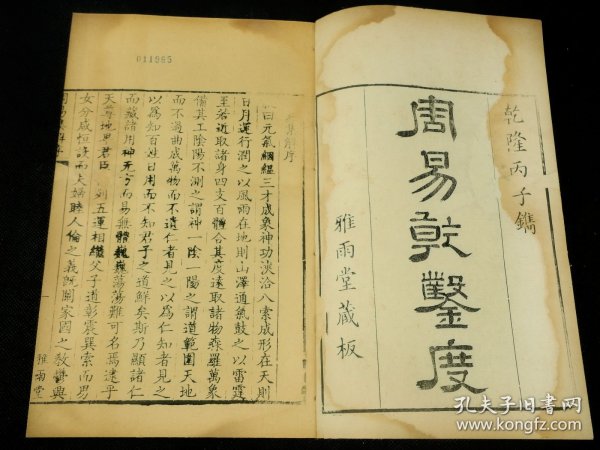 乾隆丙子鐫
周易乾鑿度
雅雨堂藏板
011965
集解序
曰元氣絪縕三才成象神功浹洽八索成形在天則
日月運行潤之以風雨在地則山澤通氣鼓之以雷霆
至若近取諸身四支百體合其度遠取諸物森羅萬象
備其工陰陽不測之謂神一陰一陽之謂道範圍天地
而不過曲成萬物而不遺仁者見之以為仁知者見之
以為知百姓日用而不知君子之道鮮矣斯乃顯諸仁
而藏諸用神无方而易無體巍巍蕩蕩難可名焉逮乎
天尊地卑君臣列五運相繼父子道彰震巽索而易
女分咸恒設而夫婦睦人倫之義既闡家國之教鬱興
雅雨堂
孔夫子旧书网
www.kongfz.com